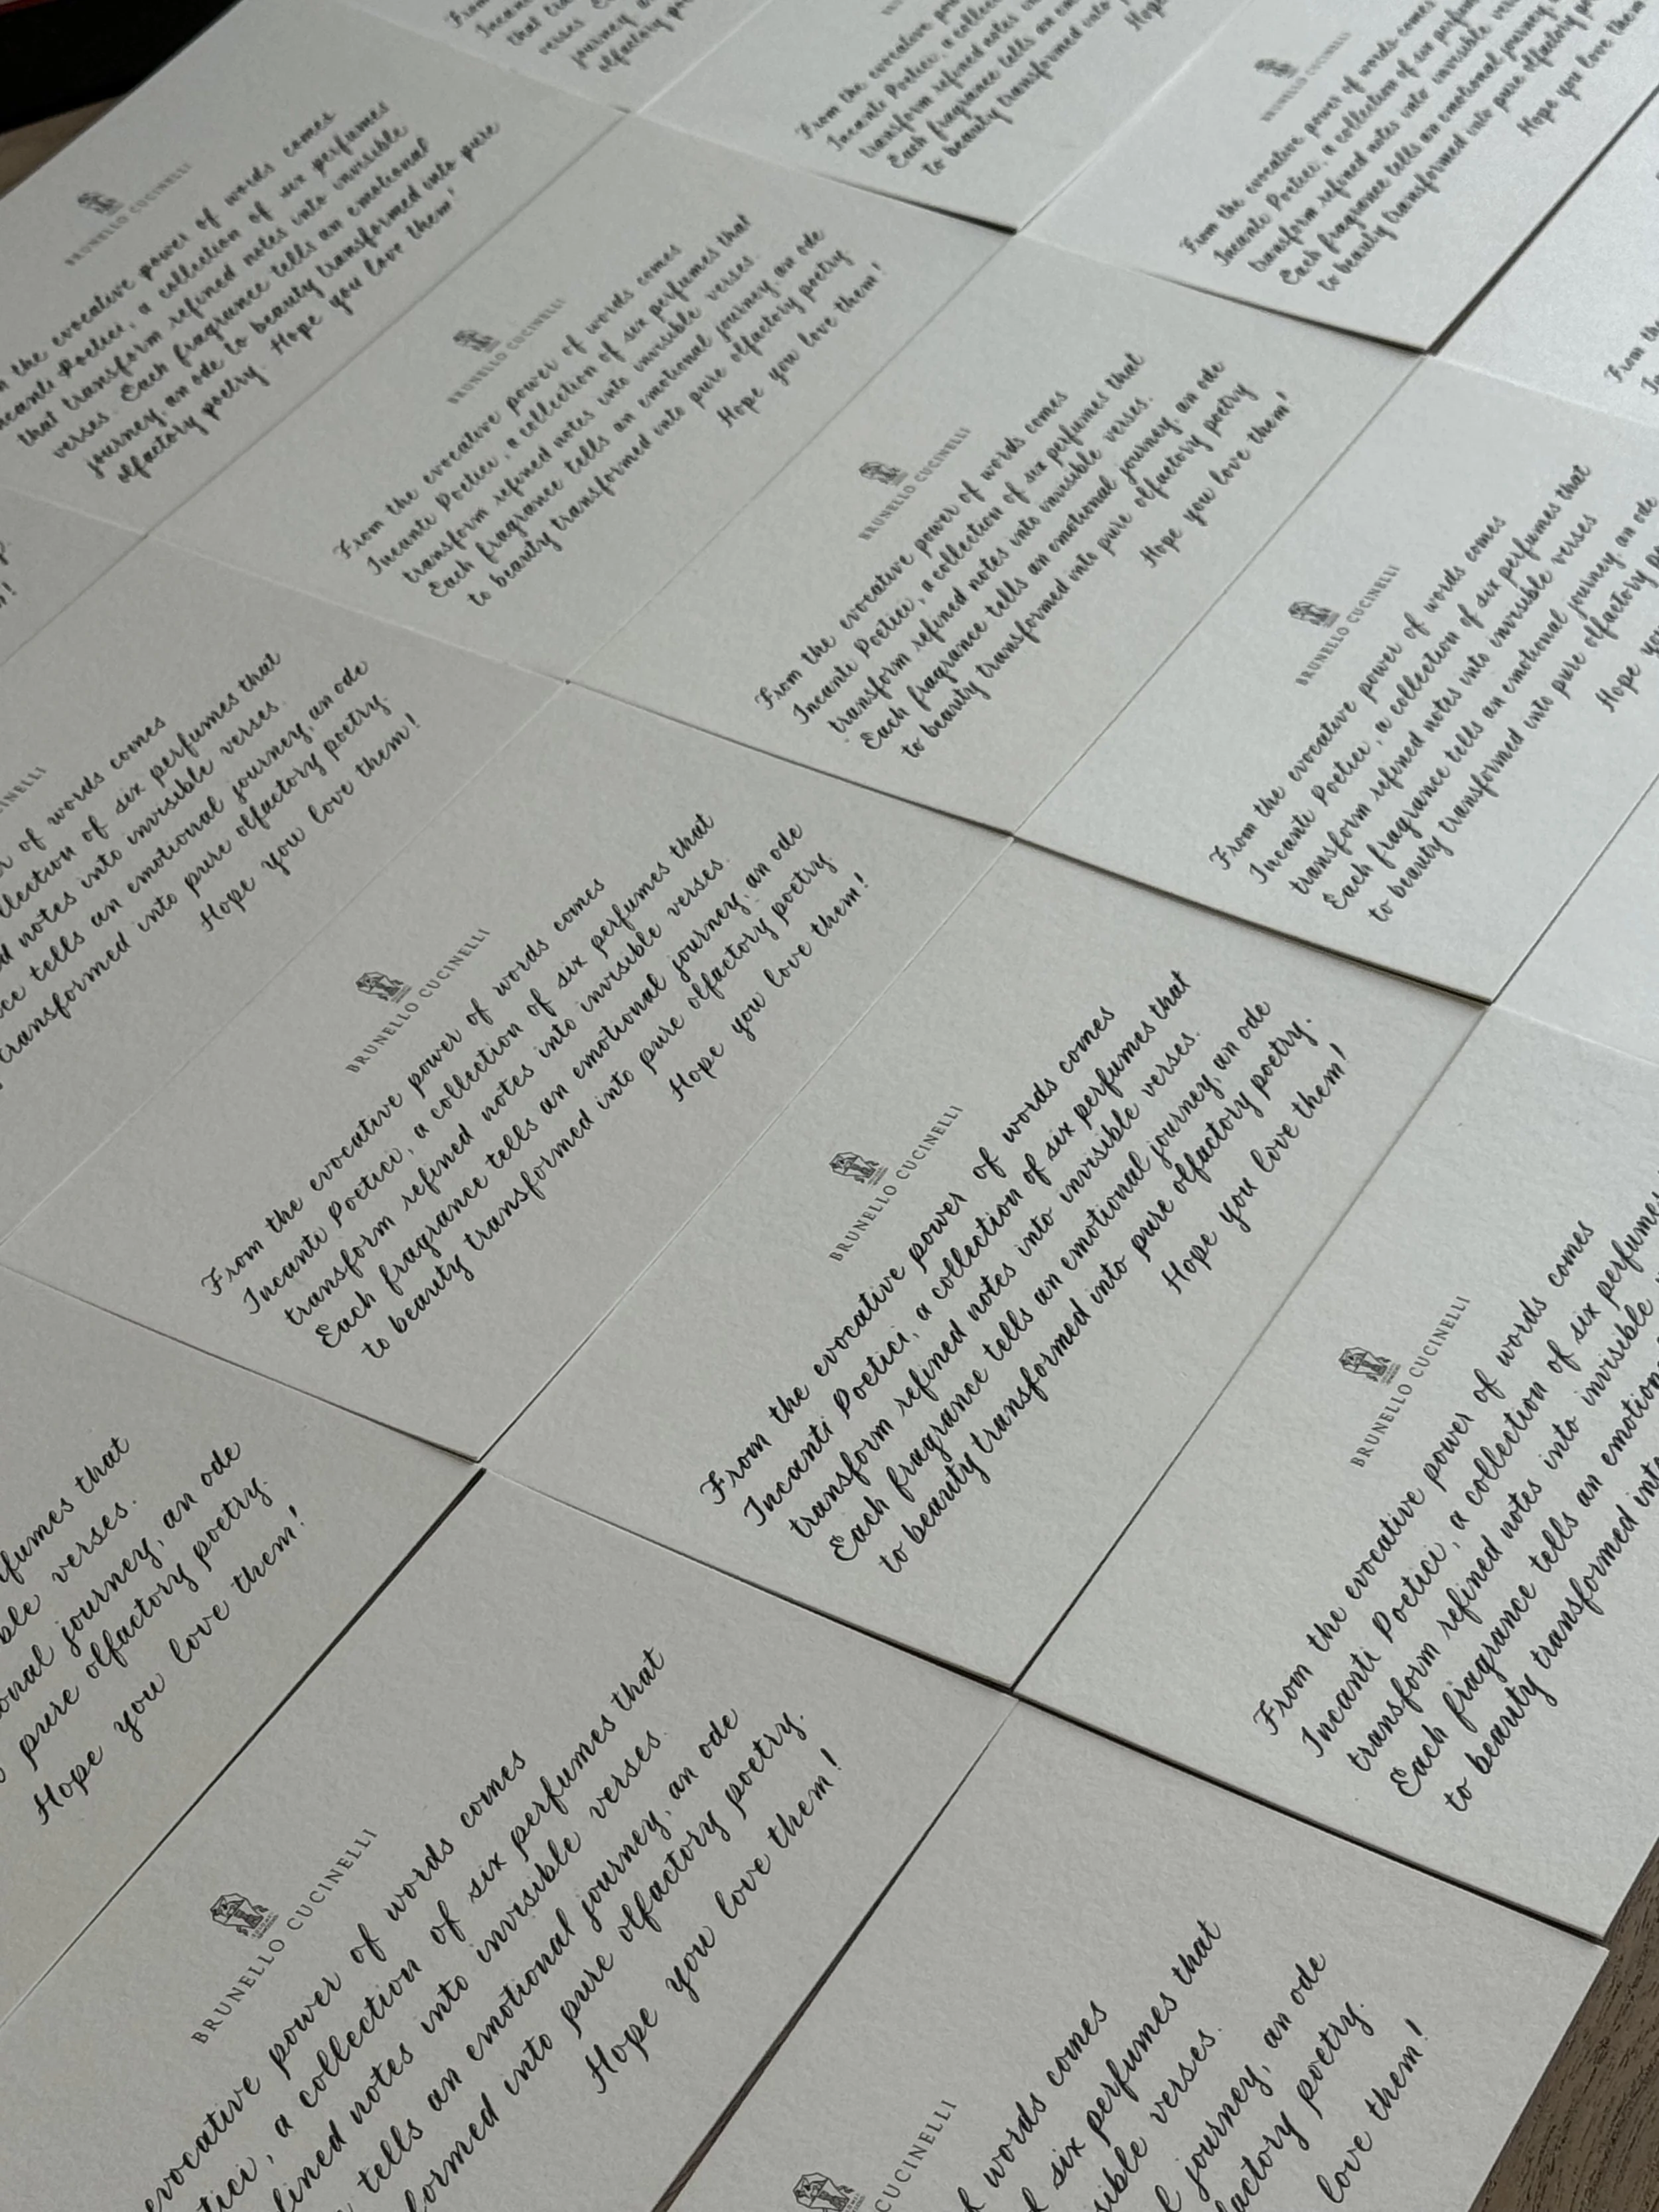 BRUNELLO CUCINELLI
From the evocative power of words comes
Incanti Poetici, a collection of six perfumes that
transform refined notes into invisible verses.
Each fragrance tells an emotional journey, an ode
to beauty transformed into pure olfactory poetry.
Hope you love them!